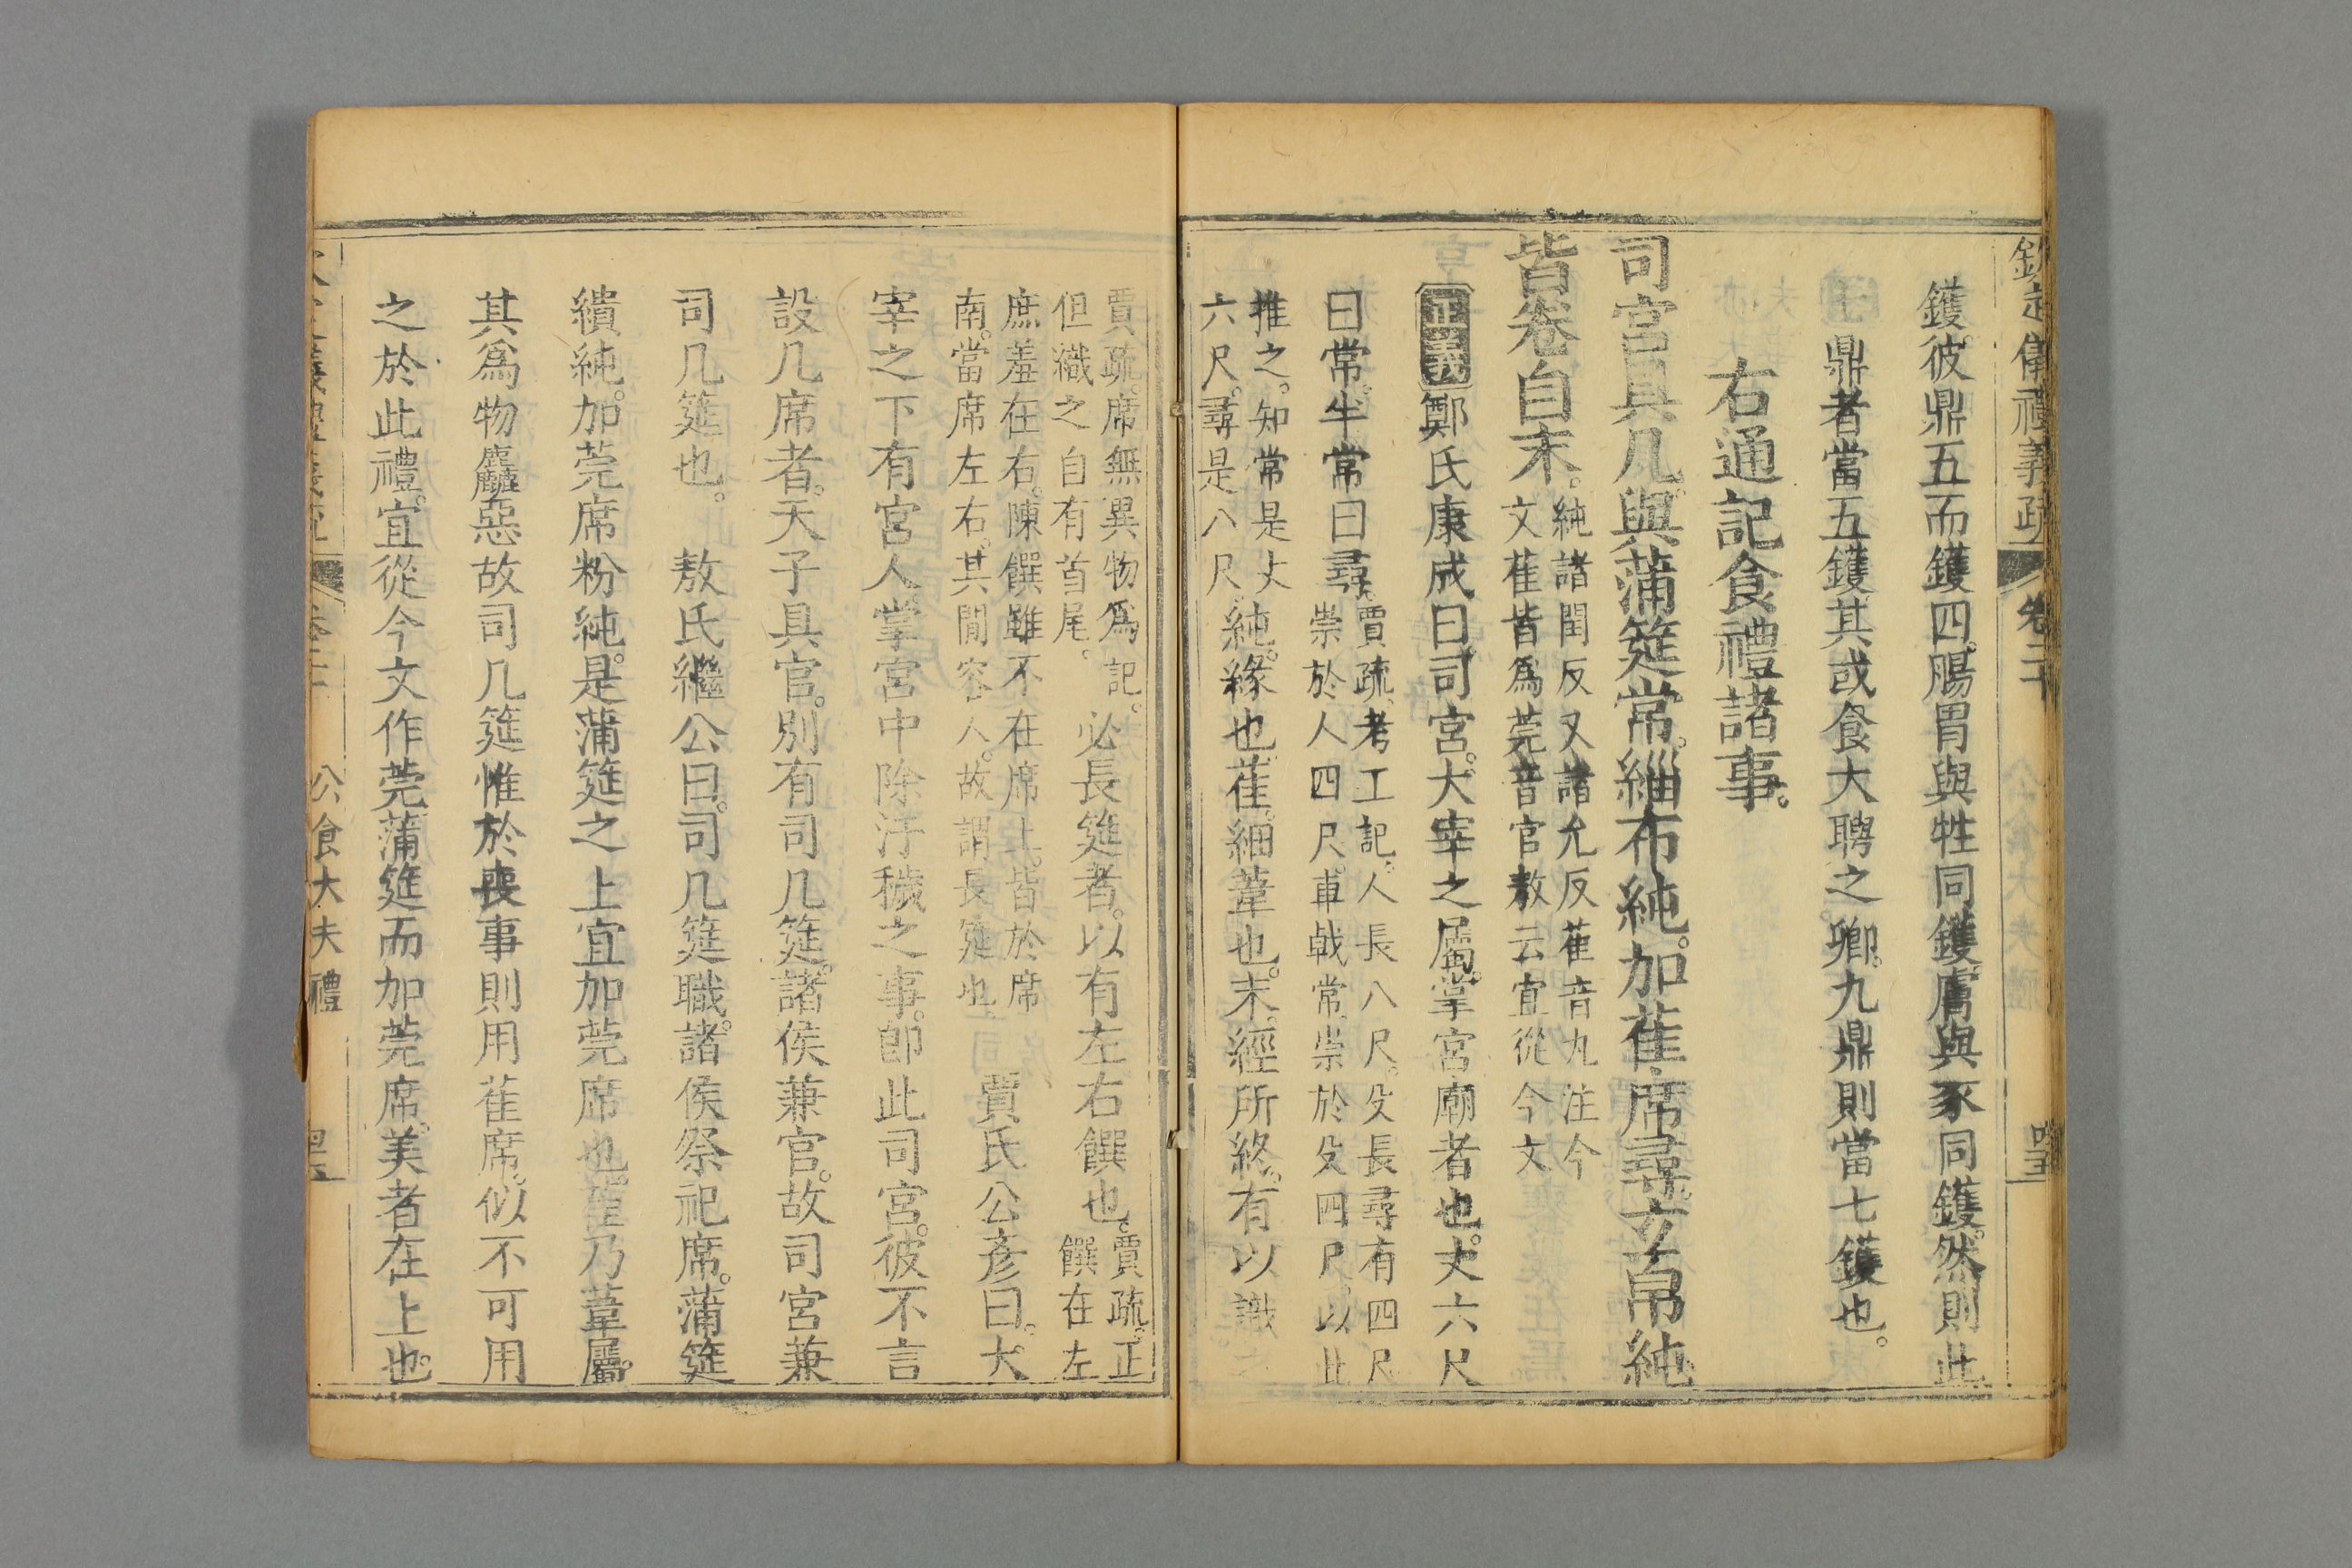 欽定儀禮義疏 卷二十
鑊。彼鼎五而鑊四。腸胃與牲同鑊。膚與豕同鑊。然則此
鼎者當五鑊。其或食大聘之卿。九鼎則當七鑊也。
右通記食禮諸事。
司宮具几。與蒲筵常。緇布純。加萑席尋。玄帛純
皆卷自末。
純諸閏反又諸允反萑音九注今
文萑皆爲莞音官敖云宜從今文
正義
鄭氏康成曰。司宮。大宰之屬。掌宮廟者也。丈六尺
曰常。半常曰尋。
賈疏。考工記。人長八尺。殳長尋有四尺
崇於人四尺。車戟常。崇於殳四尺。以此
推之。知常是丈
六尺。尋是八尺。
純。緣也。萑。細葦也。末。經所終。有以識
賈疏。席無異物爲記。
但織之自有首尾。
必長筵者。以有左右饌也。
賈疏。正
饌在左
庶羞在右。陳饌雖不在席上。皆於席
南。當席左右。其閒容人。故謂長筵也。
賈氏公彥曰。大
宰之下有宮人。掌宮中除汙穢之事。卽此司宮。彼不言
設几席者。天子具官。別有司几筵。諸侯兼官。故司宮兼
司几筵也。 敖氏繼公曰。司几筵職。諸侯祭祀席。蒲筵
繢純。加莞席粉純。是蒲筵之上宜加莞席也。萑乃葦屬。
其爲物麤惡。故司几筵惟於喪事則用萑席。似不可用
之於此禮。宜從今文作莞。蒲筵而加莞席。美者在上也。
公食大夫禮